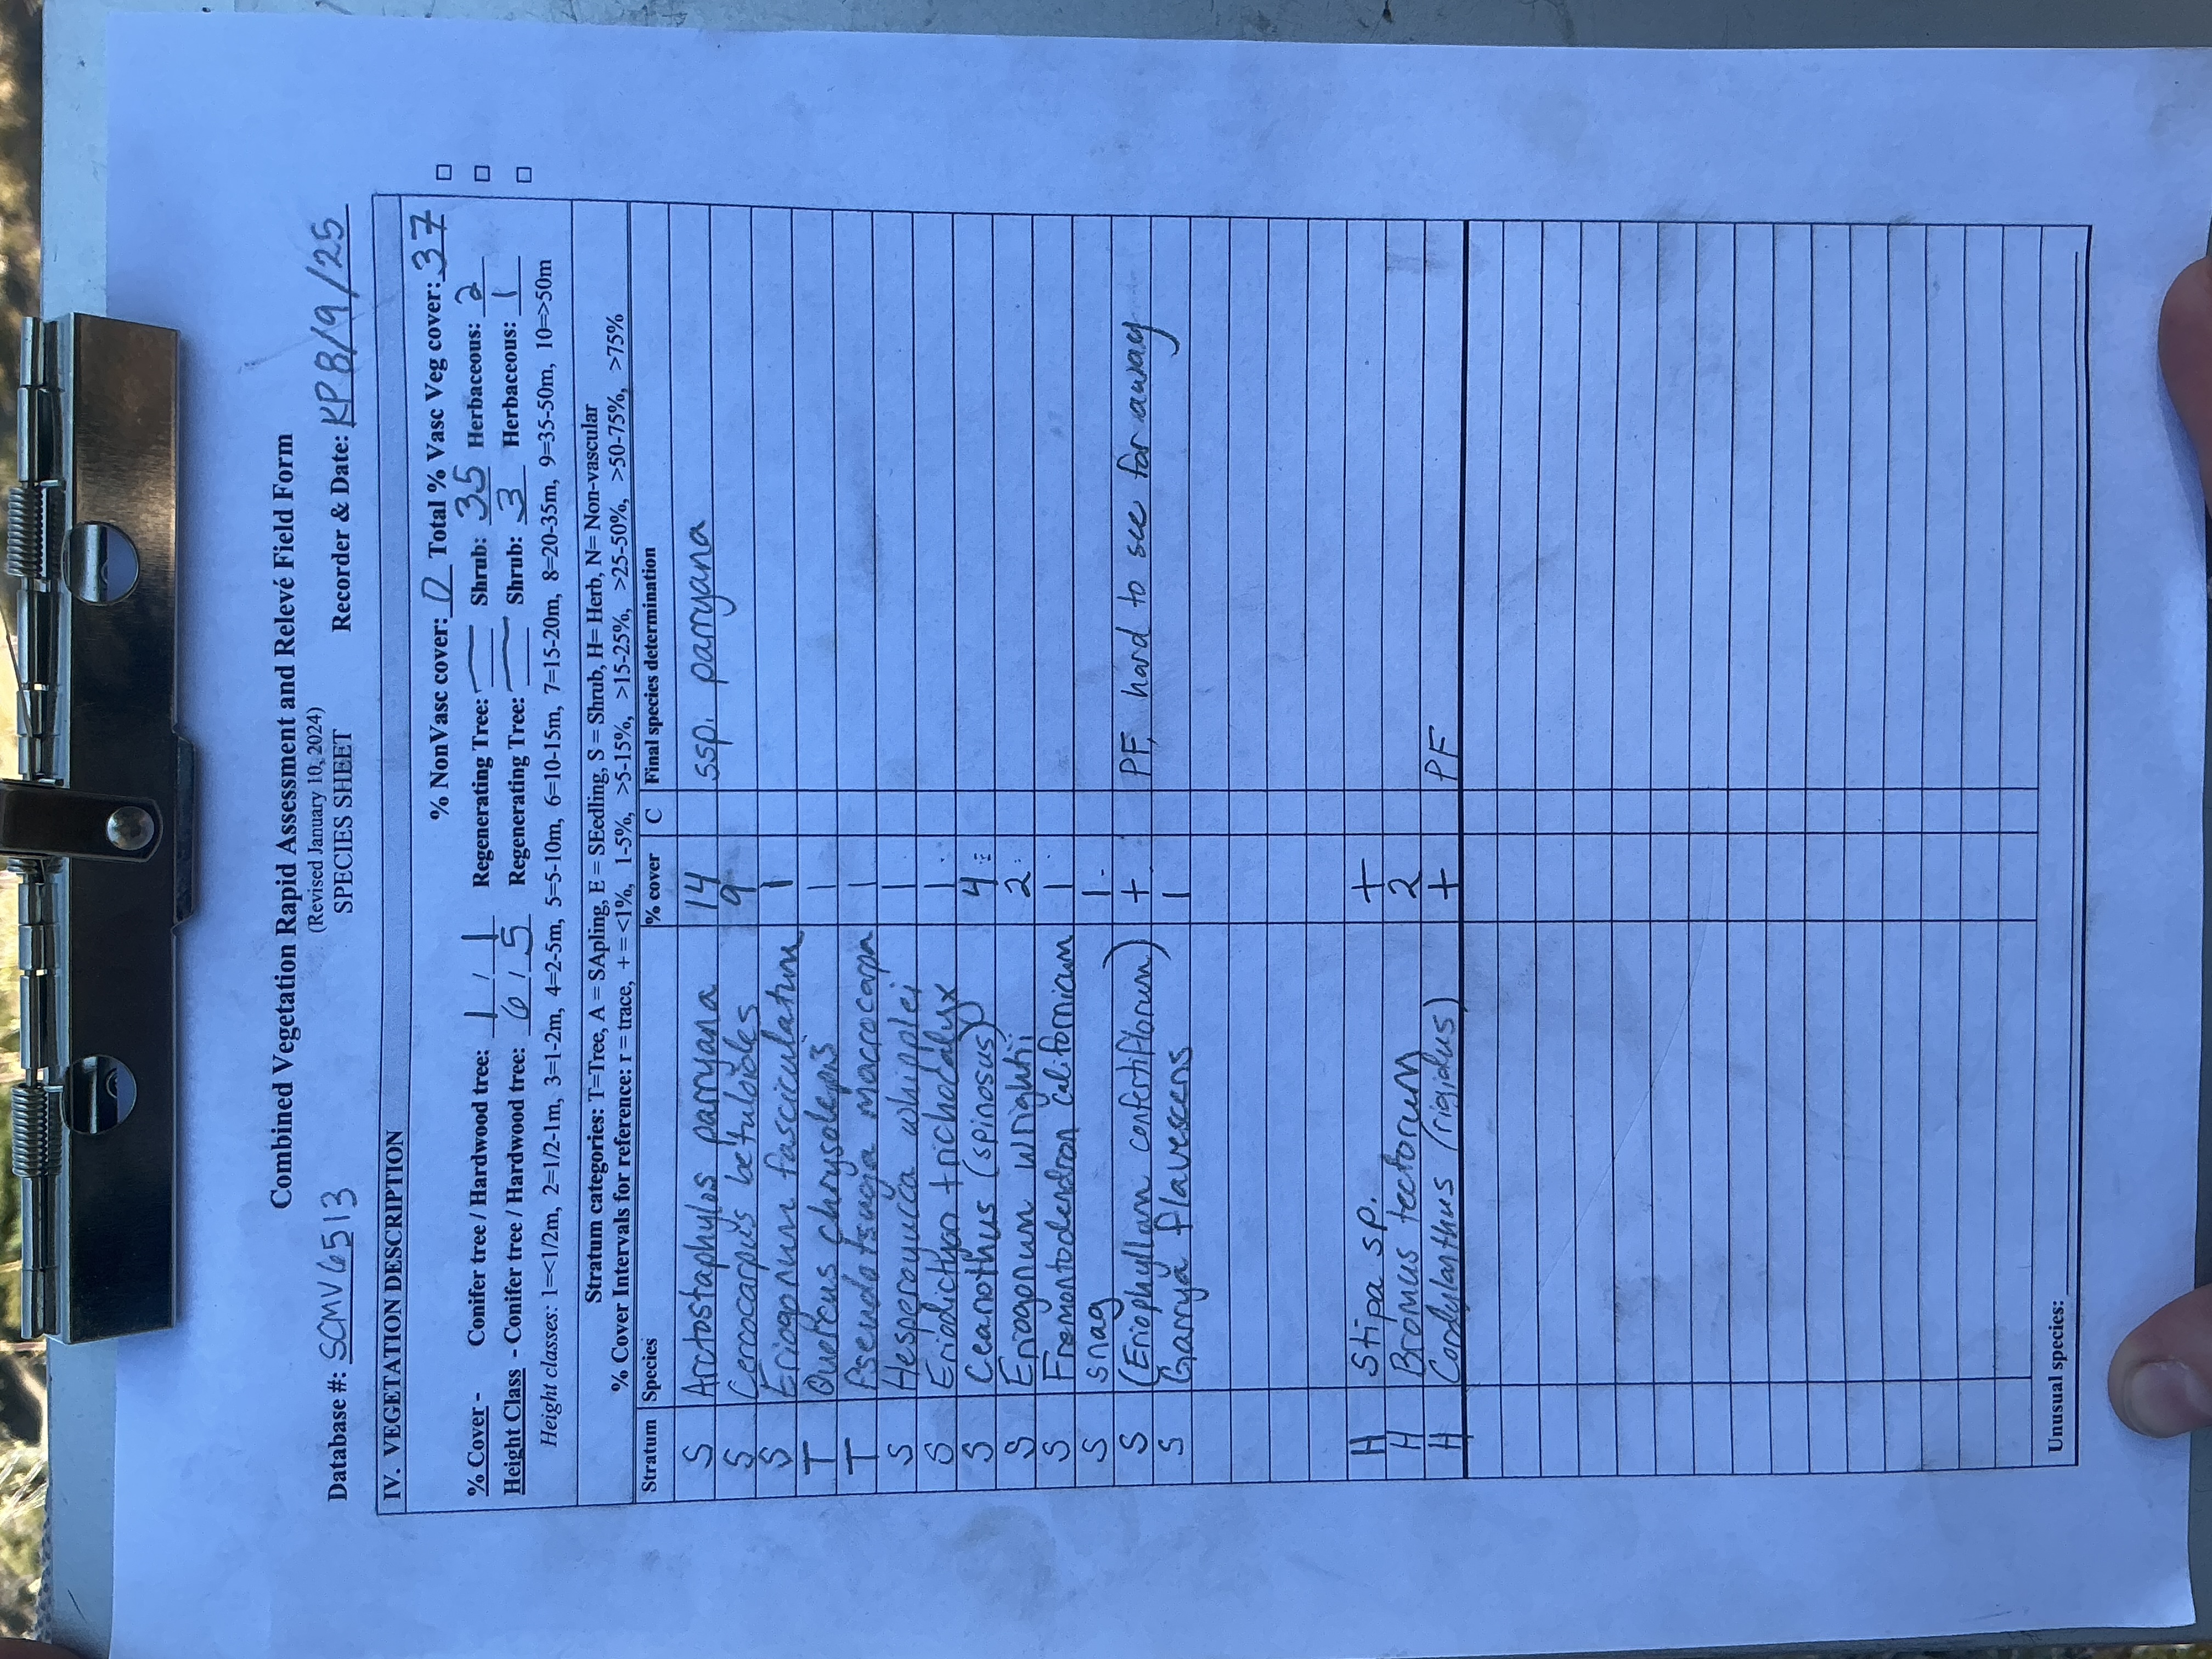 Combined Vegetation Rapid Assessment and Relevé Field Form
(Revised January 10, 2024)
Database #: SCMV6513 SPECIES SHEET Recorder & Date: KP 8/9/25
IV. VEGETATION DESCRIPTION
% NonVasc cover: 0 Total % Vasc Veg cover: 37
% Cover - Conifer tree / Hardwood tree: 1 / 1 Regenerating Tree: — Shrub: 35 Herbaceous: 2
Height Class - Conifer tree / Hardwood tree: 6 / 5 Regenerating Tree: — Shrub: 3 Herbaceous: 1
Height classes: 1=<1/2m, 2=1/2-1m, 3=1-2m, 4=2-5m, 5=5-10m, 6=10-15m, 7=15-20m, 8=20-35m, 9=35-50m, 10=>50m
Stratum categories: T=Tree, A = SApling, E = SEedling, S = Shrub, H= Herb, N= Non-vascular
% Cover Intervals for reference: r = trace, + = <1%, 1-5%, >5-15%, >15-25%, >25-50%, >50-75%, >75%
Stratum Species % cover C Final species determination
S Arctostaphylos parryana 14 ssp. parryana
S Cercocarpus betuloides 9
S Eriogonum fasciculatum 1
T Quercus chrysolepis 1
T Pseudotsuga macrocarpa 1
S Hesperoyucca whipplei 1
S Eriodictyon trichocalyx 1
S Ceanothus (spinosus) 4
S Eriogonum wrightii 2
S Fremontodendron californicum 1
S snag 1
S (Eriophyllum confertiflorum) + PF, hard to see far away
S Garrya flavescens 1
H Stipa sp. +
H Bromus tectorum 2
H Cordylanthus (rigidus) + PF
Unusual species: